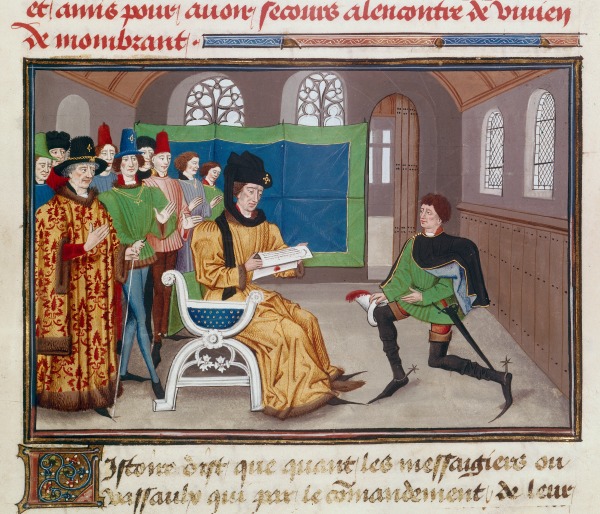 et amis pour auoir secours alencontre de vivien
de mombrant
Istoire dist que quant les messaigiers ou
vassaulx qui par le cõmandement de leur